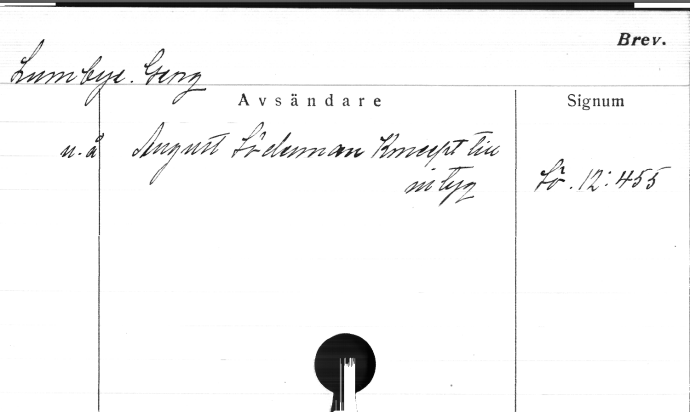 Brev.
Lumbye. Georg
Avsändare Signum
u. å August Söderman Koncept till
intyg Sö. 12:455